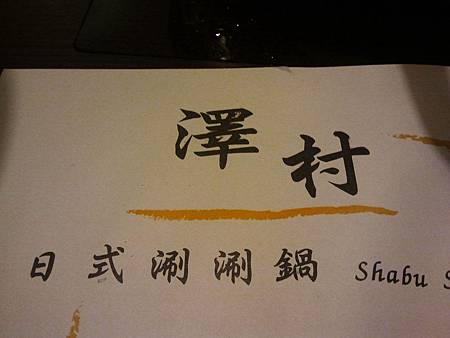 澤村
日式涮涮鍋 Shabu S